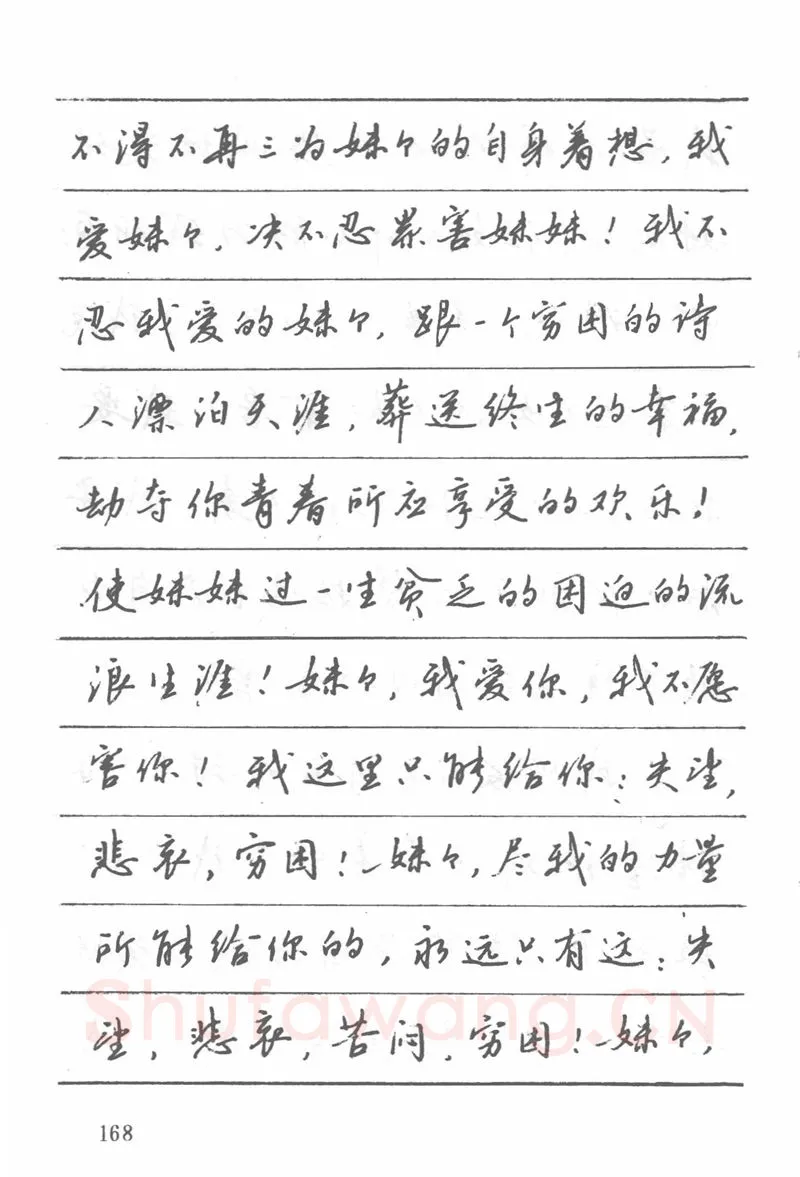 不得不再三为妹々的自身着想，我
爱妹々，决不忍累害妹妹！我不
忍我爱的妹々，跟一个穷困的诗
人漂泊天涯，葬送终生的幸福，
劫夺你青春所应享受的欢乐！
使妹妹过一生贫乏的困迫的流
浪生涯！妹々，我爱你，我不愿
害你！我这里只能给你：失望，
悲哀，穷困！妹々，尽我的力量
所能给你的，永远只有这：失
望，悲哀，苦闷，穷困！妹々，
Shufawang.CN
168